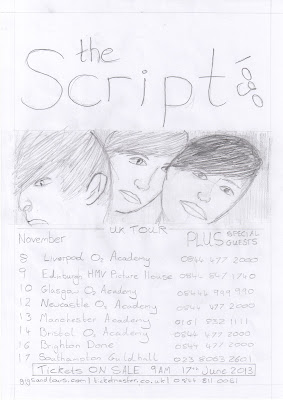 the
Script
logo
UK TOUR
November
PLUS SPECIAL GUESTS
8 Liverpool O2 Academy 0844 477 2000
9 Edinburgh HMV Picture House 0844 847 1740
10 Glasgow O2 Academy 08444 999 990
12 Newcastle O2 Academy 0844 477 2000
13 Manchester Academy 0161 832 1111
14 Bristol O2 Academy 0844 477 2000
16 Brighton Dome 0844 477 2000
17 Southampton Guildhall 023 8063 2601
Tickets ON SALE 9AM 17th June 2013
gigsandtours.com | ticketmaster.co.uk | 0844 811 0051